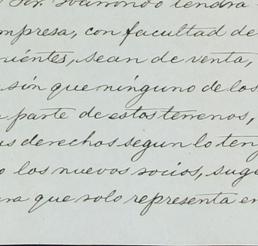 Sr. Ybarrondo tendrá
mpresa, con facultad de
nientes, sean de venta,
sin que ninguno de los
parte de estos terrenos,
us derechos segun lo ten
o los nuevos socios, suge
ra que solo representa en